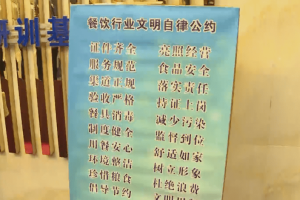 培训基
餐饮行业文明自律公约
证件齐全 亮照经营
服务规范 食品安全
渠道正规 落实责任
验收严格 持证上岗
餐具消毒 减少污染
制度健全 监督到位
用餐安心 舒适如家
环境整洁 树立形象
珍惜粮食 杜绝浪费
倡导节约 文明用